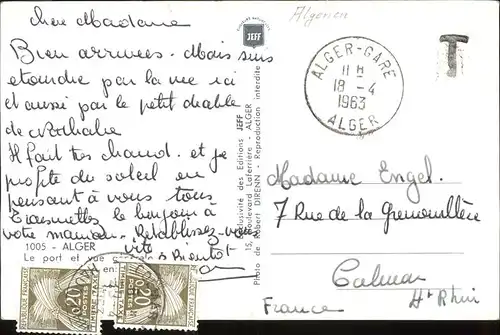 Chère Madame
Bien arrivées - Mais suis
étourdie par la vie ici
et aussi par le petit diable
de Nathalie
Il fait très chaud. et je
profite du soleil en
pensant à vous tous
Transmettez le bonjour à
votre maman - Rétablissez-vous
vite
à Bientôt
1005 - ALGER
Le port et vue
en
JEFF
Exclusivité des Editions JEFF
15, Boulevard Laferrière - ALGER
Photo de Robert DIRENN - Reproduction interdite
Algerien
ALGER-GARE
11 H
18 - 4
1963
ALGER
T
Madame Engel.
7 Rue de la Grenouillère
Colmar
Ht Rhin
France
REPUBLIQUE FRANÇAISE
0,20
POSTES
TIMBRE TAXE
0,20
POSTES
TIMBRE TAXE